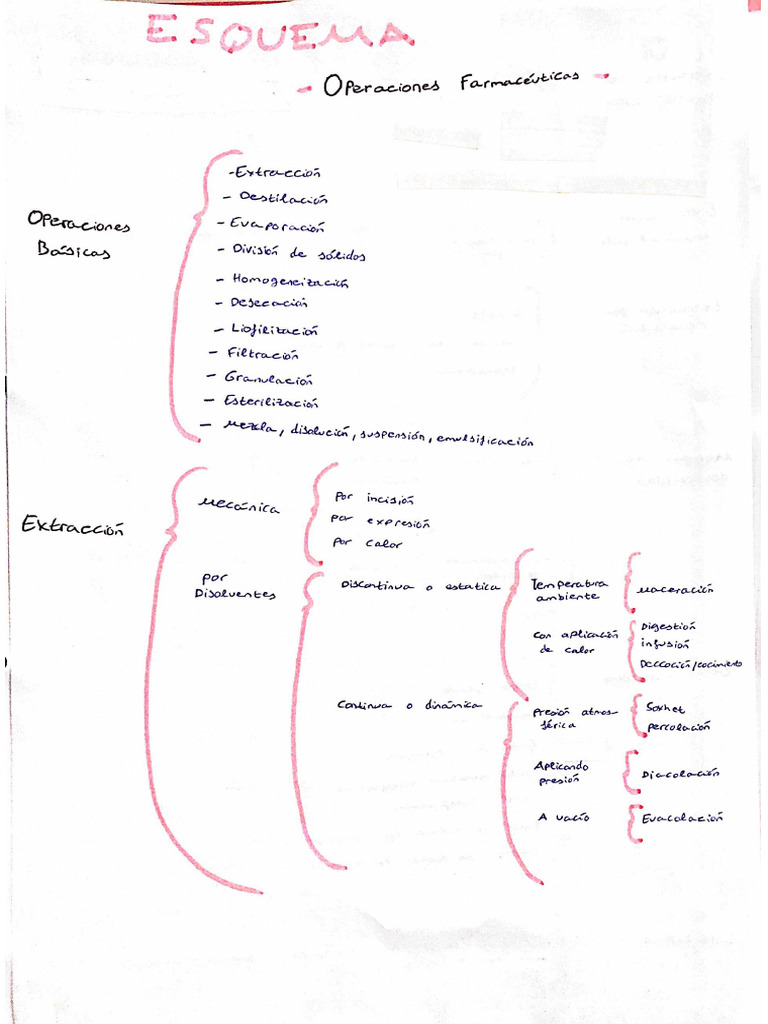 ESQUEMA
- Operaciones Farmacéuticas -
Operaciones
Básicas
- Extracción
- Destilación
- Evaporación
- División de sólidos
- Homogeneización
- Desecación
- Liofilización
- Filtración
- Granulación
- Esterilización
- Mezcla, disolución, suspensión, emulsificación
Extracción
Mecánica
Por incisión
por expresión
por calor
por
Disolventes
Discontinua o estatica
Temperatura
ambiente
Maceración
Con aplicación
de calor
Digestión
infusión
Decocción/cocimiento
Continua o dinámica
Presión atmos-
férica
Soxhet
percolación
Aplicando
presión
Diacolación
A vacío
Evacolación